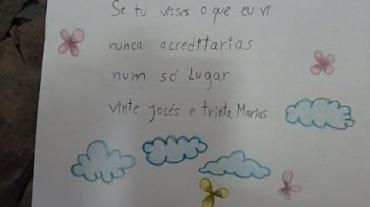 Se tu visses o que eu vi
nunca acreditarias
num só Lugar
vinte josés e trinta Marias